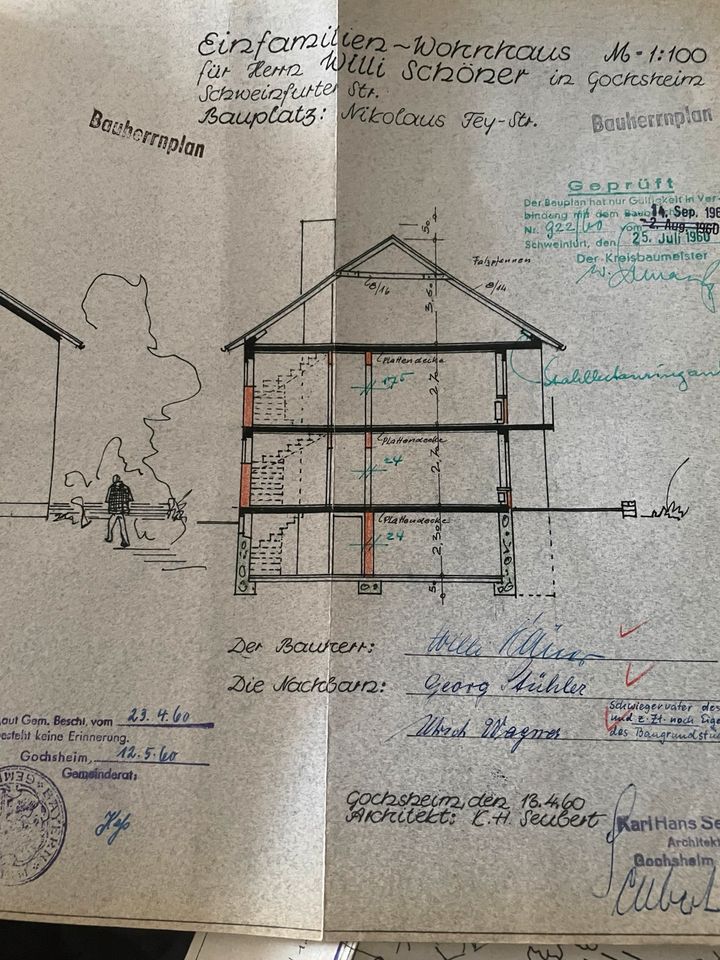 Einfamilien-Wohnhaus M-1:100
für Herrn Willi Schöner in Gochsheim
Schweinfurter Str.
Bauplatz: Nikolaus Fey-Str.
Bauherrnplan
Bauherrnplan
Geprüft
Der Bauplan hat nur Gültigkeit in Ver-
bindung mit dem 14. Sep. 196
Nr. 922/60 vom 2. Aug. 1960
Schweinfurt, den 25. Juli 1960
Der Kreisbaumeister
50
Falzpfannen
8/16
8/14
3,60
Plattendecke
17,5
2,70
Plattendecke
24
2,70
Plattendecke
24
2,30
50
Der Bauherr: Willi
Die Nachbarn: Georg Stühler
Ulrich Wagner
Schwiegervater des
und z. Zt. noch Eige
des Baugrundstü
aut Gem. Beschl. vom 23.4.60
esteht keine Erinnerung.
Gochsheim, 12.5.60
Gemeinderat:
BAYERN
GEME
Gochsheim, den 13.4.60
Architekt: K.H. Seubert
Karl Hans Se
Architekt
Gochsheim